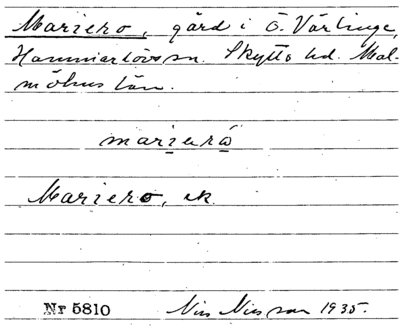 Mariero, gård i Ö. Värlinge,
Hammarlövs sn. Skytts hd. Mal-
möhus län.
marierå
Mariero, ek.
Nr 5810 Nils Nilsson 1935.